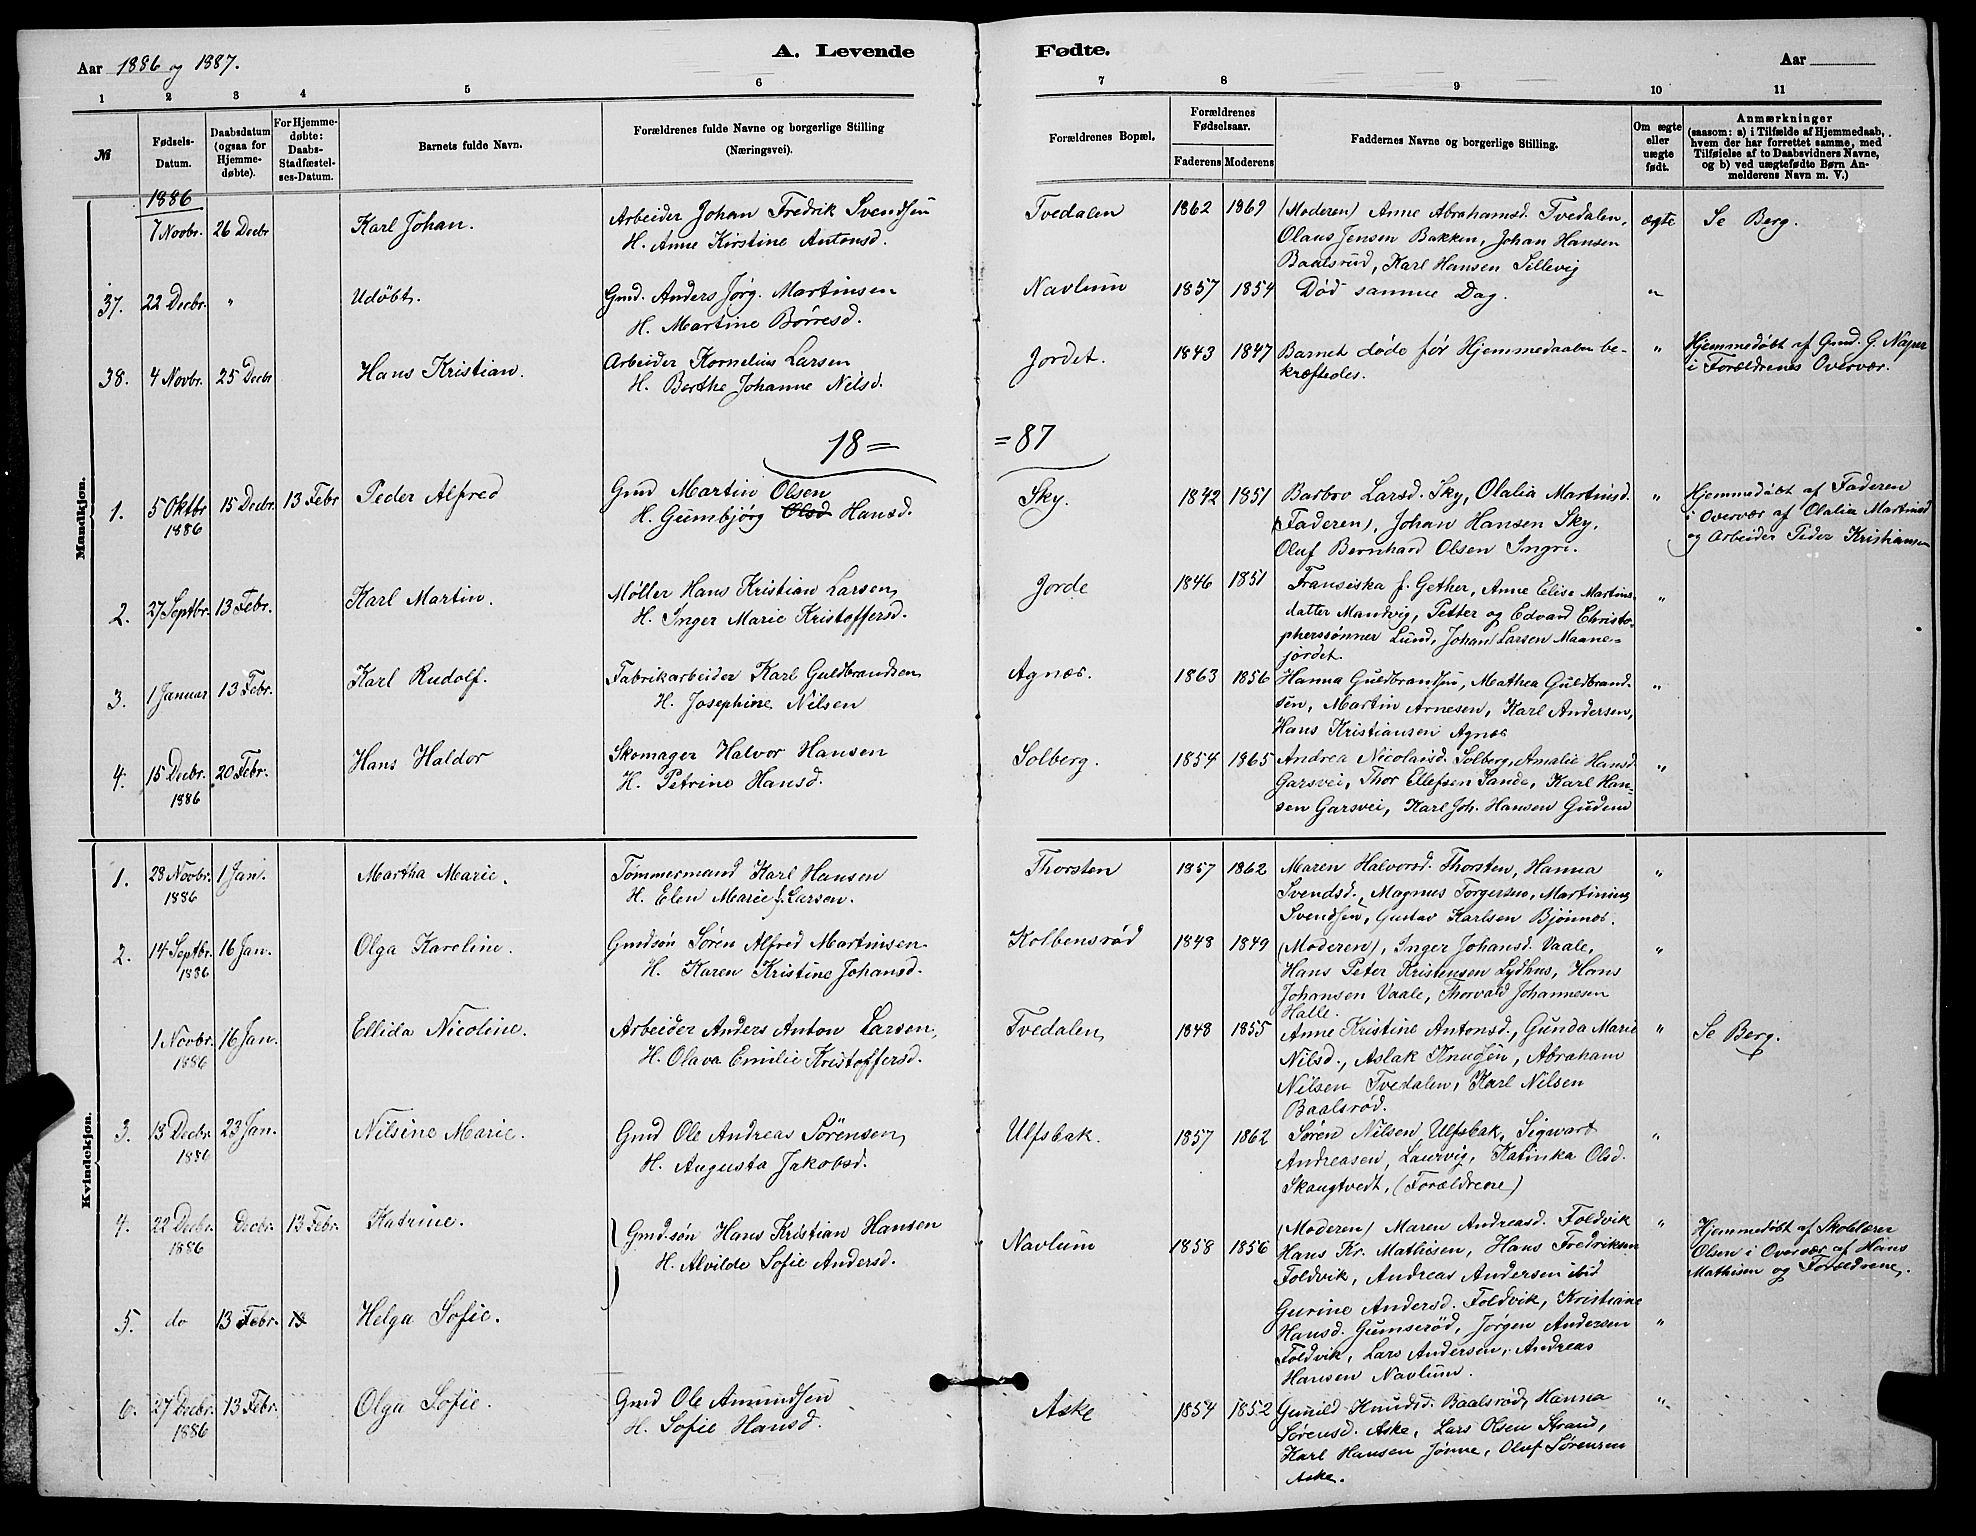 Aar 1886 og 1887.
A. Levende
Fødte.
Aar
1 2 3 4 5 6 7 8 9 10 11
№
Fødsels-Datum.
Daabsdatum (ogsaa for Hjemme-døbte).
For Hjemme-døbte: Daabs-Stadfæstel-ses-Datum.
Barnets fulde Navn.
Forældrenes fulde Navne og borgerlige Stilling (Næringsvei).
Forældrenes Bopæl,
Forældrenes Fødselsaar.
Faderens Moderens
Faddernes Navne og borgerlige Stilling.
Om ægte eller uægte født.
Anmærkninger
(saasom: a) i Tilfælde af Hjemmedaab,
hvem der har forrettet samme, med
Tilføielse af to Daabsvidners Navne,
og b) ved uægtefødte Børn An-
melderens Navn m. V.)
Mandkjøn.
1886
7 Novbr. 26 Decbr Karl Johan. Arbeider Johan Fredrik Svendsen Tvedalen 1862 1869 (Moderen) Anne Abrahamsd. Tvedalen, ægte Se Berg.
H. Anne Kirstine Antonsd. Olaus Jensen Bakken, Johan Hansen
Baalsrud, Karl Hansen Sillevig
37. 22 Decbr. " Udøbt. Gmd. Anders Jørg. Martinsen Navlum 1857 1854 Død samme Dag. "
H. Martine Børresd.
38. 4 Novbr. 25 Decbr Hans Kristian. Arbeider Kornelius Larsen Jordet. 1843 1847 Barnet døde før Hjemmedaaben be- " Hjemmedøbt af Gmd. G. Najer
H. Berthe Johanne Nilsd. kræftedes. i Forældrenes Overvær.
18= =87
1. 5 Oktbr 1886 15 Decbr. 13 Febr Peder Alfred Gmd Martin Olsen Sky. 1842 1851 Barbro Larsd. Sky, Olalia Martinsd. " Hjemmedøbt af Faderen
H. Gumbjørg Olsd Hansd. (Faderen), Johan Hansen Sky, i Overvær af Olalia Martinsd
Oluf Bernhard Olsen Ingri. og Arbeider Peder Kristiansen
2. 27 Septbr. 13 Febr. Karl Martin. Møller Hans Kristian Larsen, Jorde 1846 1851 Fransiska f. Gether, Anne Elise Martins- "
H. Inger Marie Kristoffersd. datter Mandvig, Petter og Edvard Christo-
pherssønner Lund, Johan Larsen Maane-
jordet.
3. 1 Januar 13 Febr. Karl Rudolf. Fabrikarbeider Karl Guldbrandsen Agnæs. 1863 1856 Hanna Guldbrandsen, Mathea Guldbrand- "
H. Josephine Nilsen sen, Martin Arnesen, Karl Andersen,
Hans Kristiansen Agnæs
4. 15 Decbr. 1886 20 Febr. Hans Haldor Skomager Halvor Hansen Solberg. 1854 1865 Andrea Nicolaisd. Solberg, Amalie Hansd. "
H. Petrine Hansd. Garsvei, Thor Ellefsen Sande, Karl Han-
sen Garsvei, Karl Joh. Hansen Gudem
Kvindekjøn.
1. 28 Novbr. 1886 1 Jan. Martha Marie. Tømmermand Karl Hansen Thorsten 1857 1862 Maren Halvorsd. Thorsten, Hanna "
H. Elen Marie f. Larsen. Svendsd., Magnus Torgersen, Martinius
Svendsen, Gustav Karlsen Bjønnes.
2. 14 Septbr. 1886 16 Jan. Olga Karoline. Gmdsøn Søren Alfred Martinsen Kolbensrød 1848 1849 (Moderen), Inger Johansd. Vaale, "
H. Karen Kristine Johansd. Hans Peter Kristensen Lydhus, Hans
Johansen Vaale, Thorvald Johannesen
Halle.
1 Novbr. 1886 16 Jan. Ellida Nicoline. Arbeider Anders Anton Larsen, Tvedalen 1848 1855 Anne Kristine Antonsd., Gunda Marie " Se Berg.
H. Olava Emilie Kristoffersd. Nilsd., Aslak Knudsen, Abraham
Nilsen Tvedalen, Karl Nilsen
Baalsrød.
3. 13 Decbr. 1886 23 Jan. Nilsine Marie. Gmd Ole Andreas Sørensen, Ulfsbak. 1857 1862 Søren Nilsen Ulfsbak, Sigvart "
H. Augusta Jakobsd. Andreasen, Laurvig, Katinka Olsd.
Skaugtvedt, (Forældrene)
4. 22 Decbr. 1886 Decbr. 13 Febr. Katrine. Gmd.søn Hans Kristian Hansen Navlum 1858 1856 (Moderen) Maren Andreasd. Foldvik " Hjemmedøbt af Skolelærer
H. Alvilde Sofie Andersd. Hans Kr. Mathisen, Hans Fredriksen Olsen i Overvær af Hans
Foldvik, Andreas Andersen ibid Mathisen og Forældrene.
5. do 13 Febr. 13 Helga Sofie. Gurine Andersd. Foldvik, Kristiane
Hansd. Gumserød, Jørgen Andersen "
Foldvik, Lars Andersen, Andreas
Hansen Navlum.
6. 27 Decbr. 1886 13 Febr. Olga Sofie. Gmd Ole Amundsen Aske 1854 1852 Gunild Knudsd. Baalsrød, Hanna "
H. Sofie Hansd. Sørensd. Aske, Lars Olsen Strand,
Karl Hansen Jønne, Oluf Sørensen
Aske.